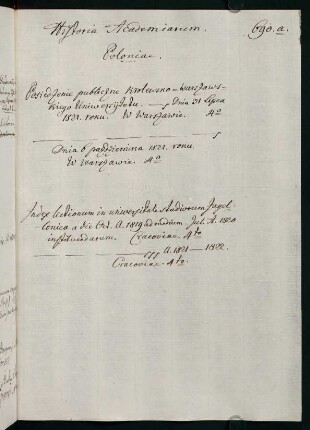 Historia Academiarum. 690.a.
Poloniae.
Posiedzenie publiczne Krolewsko-warszaws-
kiego Uniwersytetu. — Dnia 31 lipca
1821. roku. W Warszawie. 4º
Dnia 6 października 1821. roku.
W Warszawie. 4º
Index lectionum in universitate Studiorum Jagel-
lonica a die Oct. A. 1819 ad Jul. A. 1820
instituendarum. Cracoviae. 4to
A. 1821 — 1822.
Cracoviae. 4to.